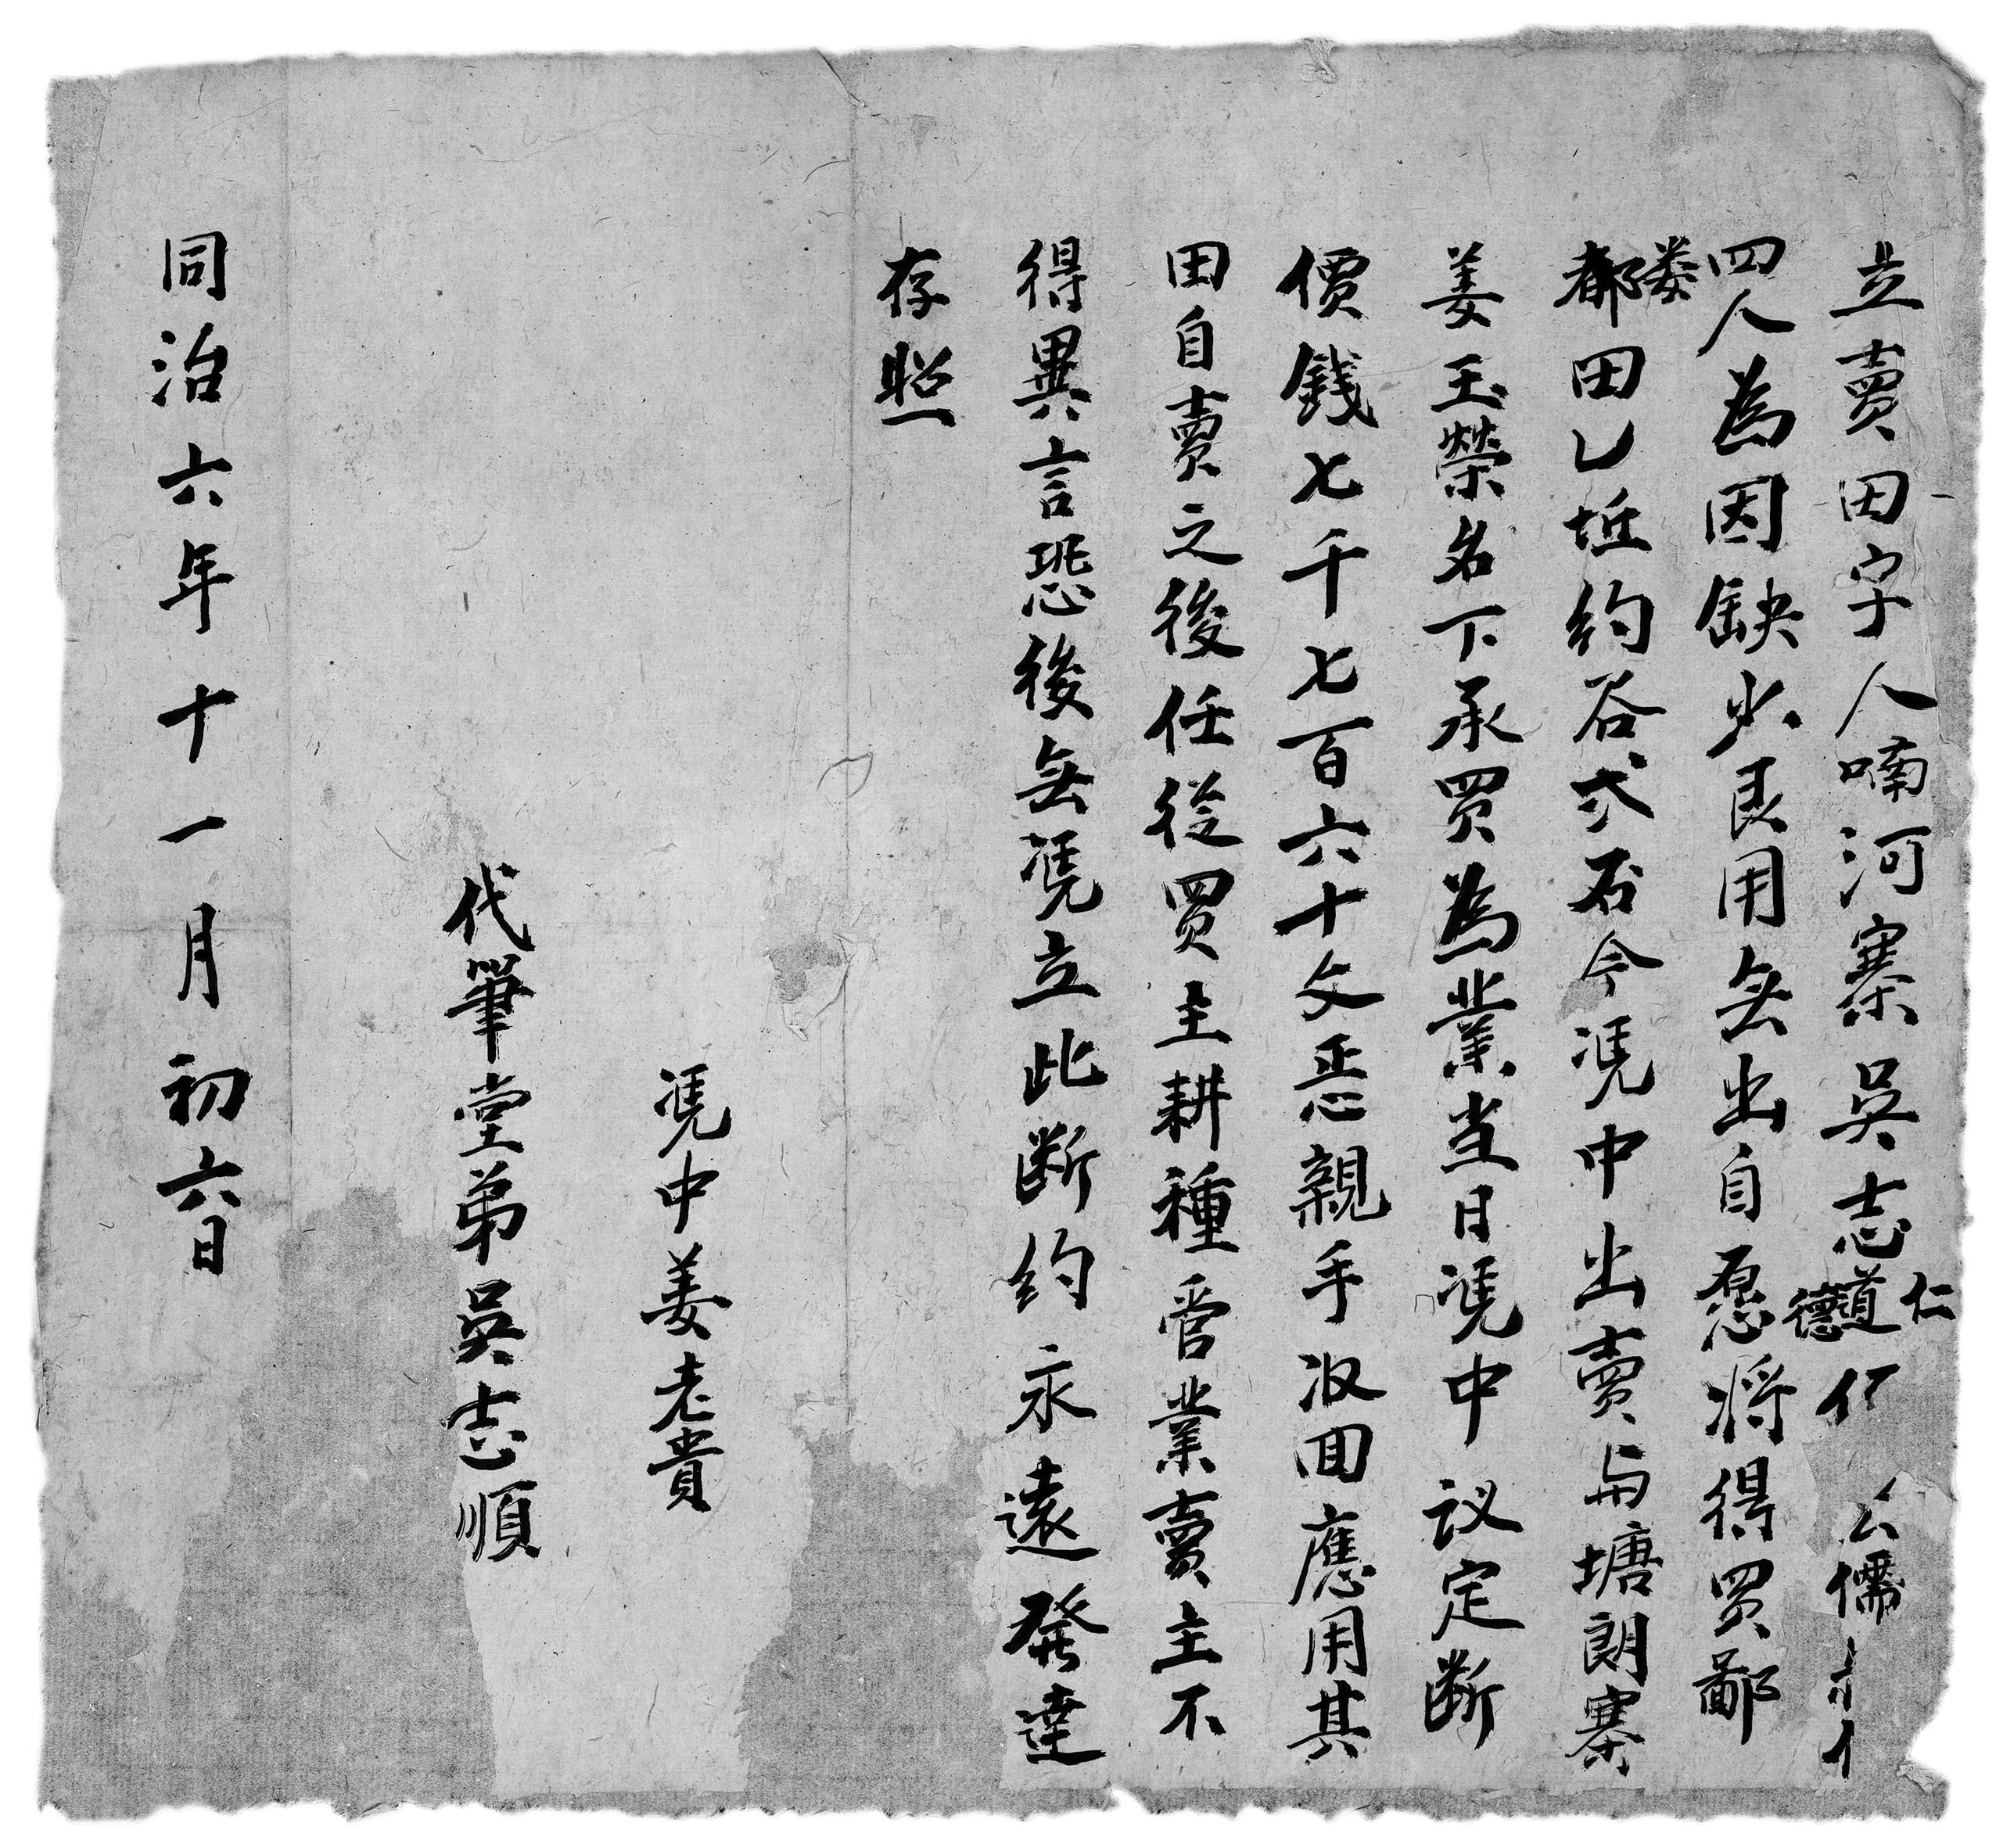 立賣田字人喃河寨吳志道仁德公儒
四人為因缺少艮用無出自愿將得買鄙
都婁田乚坵約谷弍石今凴中出賣与塘朗寨
姜玉榮名下承買為業当日凴中议定断
價錢七千七百六十文恶親手收囬應用其
田自賣之後任從買主耕種管業賣主不
得異言恐後無凴立此断約永遠發達
存照
凴中姜老貴
代筆堂弟吳志順
同治六年十一月初六日